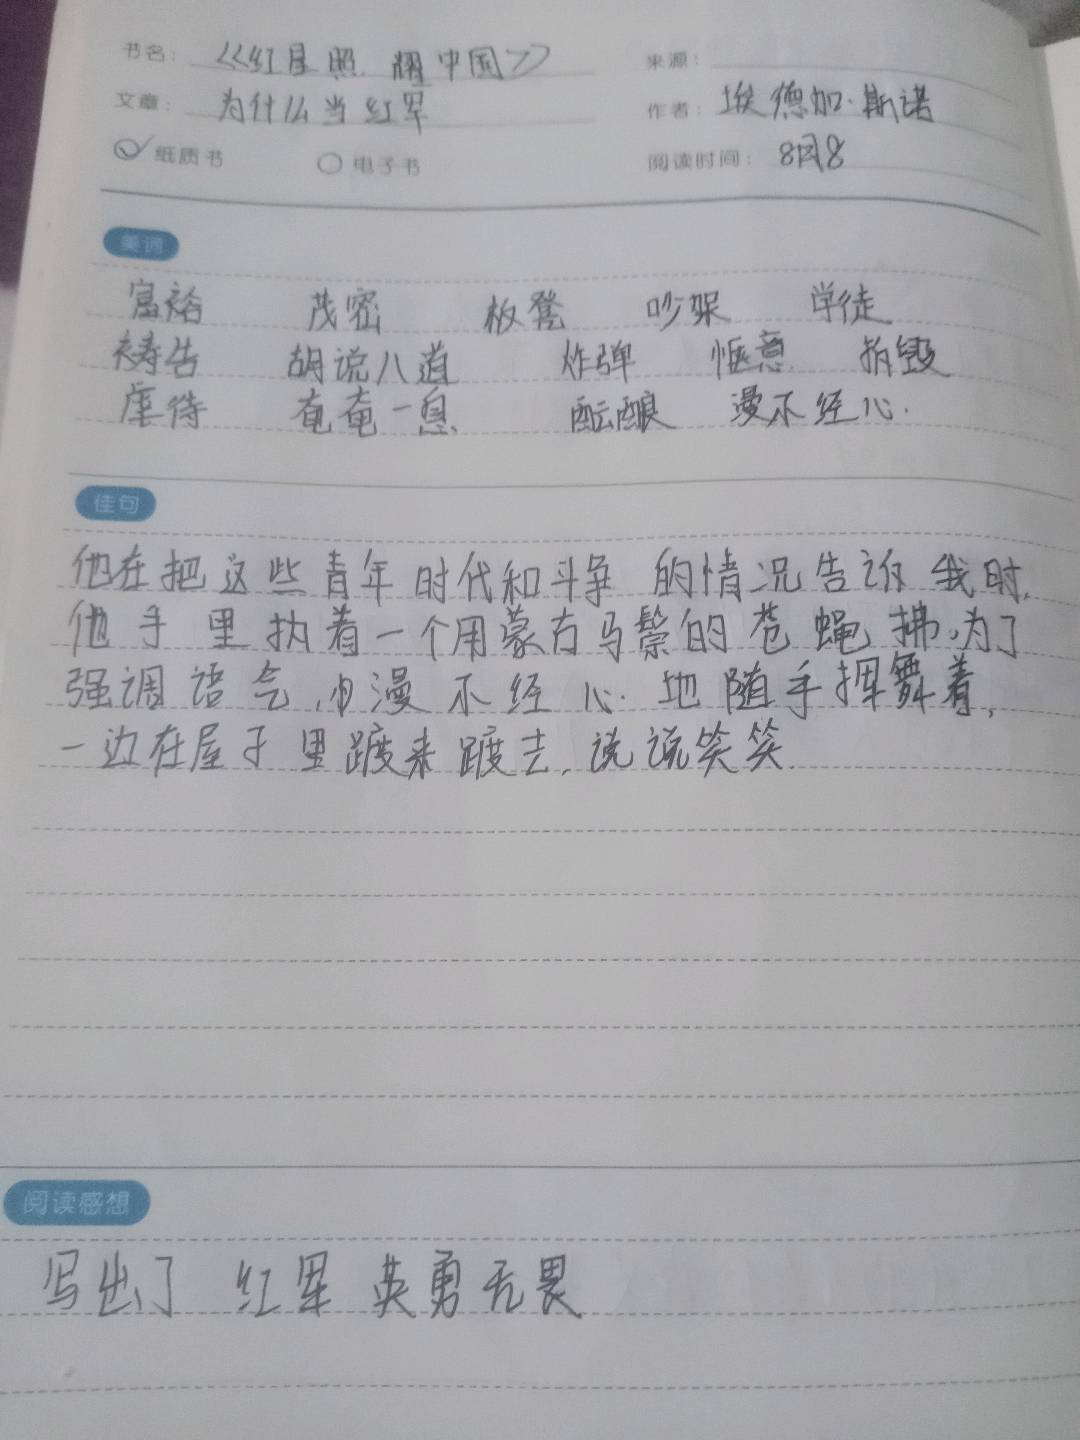 书名： 《红星照耀中国》 来源：
文章： 为什么当红军 作者： 埃德加·斯诺
纸质书 电子书 阅读时间： 8月8
美词
富裕 茂密 板凳 吵架 学徒
祷告 胡说八道 炸弹 惬意 拆毁
虐待 奄奄一息 酝酿 漫不经心.
佳句
他在把这些青年时代和斗争的情况告诉我时,
他手里执着一个用蒙古马鬃的苍蝇拂,为了
强调语气, 漫不经心地随手挥舞着,
一边在屋子里踱来踱去,说说笑笑.
阅读感想
写出了红军英勇无畏